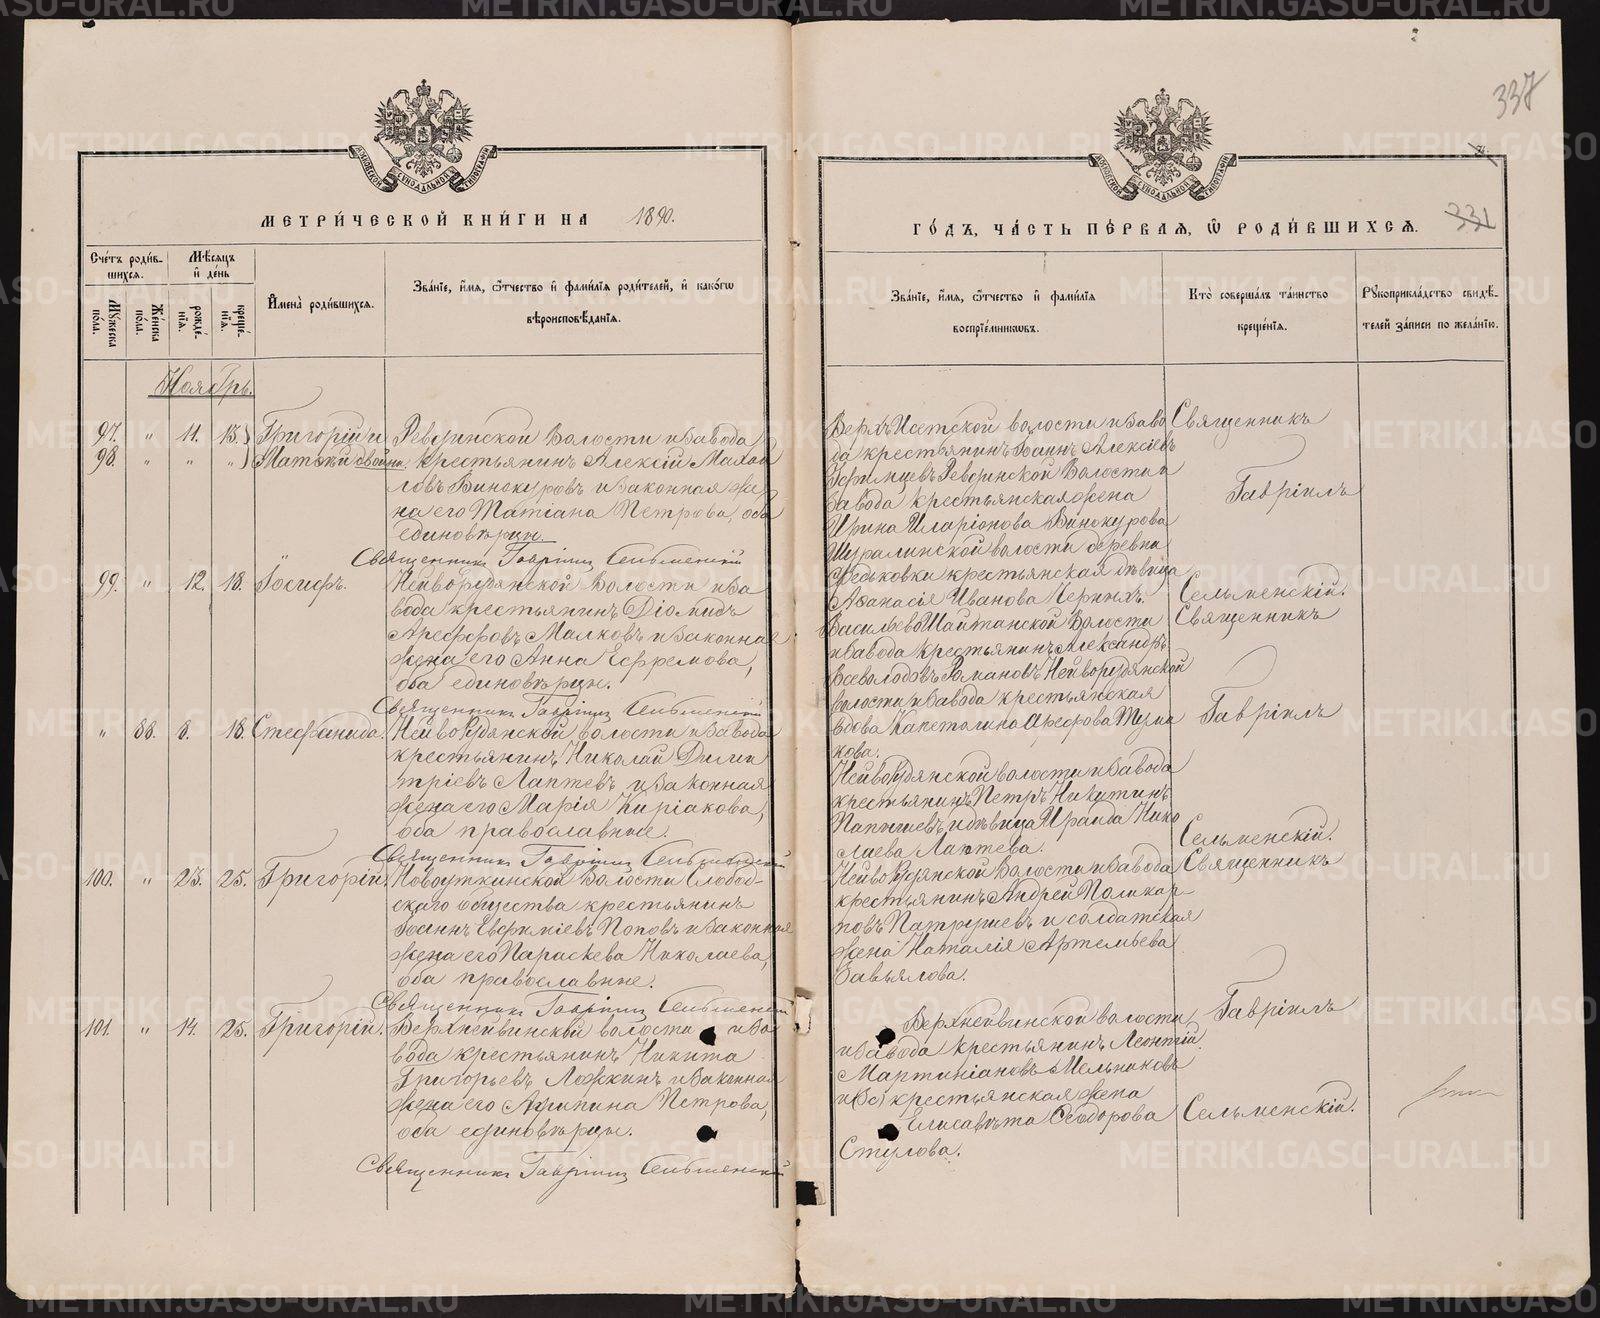 МЕТРИ́ЧЕСКОЙ КНИ́ГИ НА 1890.
Сче́тъ роди́вшихся.
Мѣ́сяцъ и де́нь
Му́жеска по́ла.
Же́нска по́ла.
рожде́нїѧ.
креще́нїѧ.
И́мена̀ роди́вшихся.
Зва́нїе, и́мѧ, ѻ҆́тчество и фами́лїѧ роди́телей, и како́гѡ
вѣроисповѣ́данїѧ.
Ноябрь.
97. " 11. 15. Григорій и Ревдинской Волости и Завода
98. " " " Матѳій двойни. крестьянинъ Алексій Михай
ловъ Винокуровъ и законная же
на его Татіана Петрова, оба
единовѣрцы.
Священникъ Гавріилъ Сельменскій
99. " 12. 18. Іосифъ. Нейворудянской Волости и За
вода крестьянинъ Діомидъ
Арефьевъ Малковъ и законная
жена его Анна Ефремова,
оба единовѣрцы.
Священникъ Гавріилъ Сельменскій
" 88. 8. 18. Стефанида. Нейворудянской волости и Завода
крестьянинъ Николай Дими
тріевъ Лаптевъ и законная
жена его Марія Киріакова,
оба православные.
Священникъ Гавріилъ Сельменскій
100. " 23. 25. Григорій. Новоуткинской Волости Слобод-
скаго общества крестьянинъ
Іоаннъ Евфиміевъ Поповъ и законная
жена его Параскева Николаева,
оба православные.
Священникъ Гавріилъ Сельменскій
101. " 14. 25. Григорій. Верхнейвинской волости и За
вода крестьянинъ Никита
Григорьевъ Ложкинъ и законная
жена его Агрипина Петрова,
оба единовѣрцы.
Священникъ Гавріилъ Сельменскій
337
331
ГО́ДЪ, ЧА́СТЬ ПЕ́РВАѦ, Ѽ РОДИ́ВШИХСѦ.
Зва́нїе, и́мѧ, ѻ҆́тчество и фами́лїѧ
воспрїе́мниковъ.
Кто̀ соверша́лъ та́инство
креще́нїѧ.
Рꙋкоприкла́дство свидѣ́-
телей за́писи по жела́нїю.
Верхъ Исетской волости и Заво
да крестьянинъ Іоаннъ Алексіевъ
Уфимцевъ Ревдинской Волости и
Завода крестьянская жена
Ирина Иларіонова Винокурова
Шуралинской волости деревни
Ѳедьковки крестьянская дѣвица
Аѳанасія Иванова Черныхъ.
Священникъ
Гавріилъ
Сельменскій.
Васильево Шайтанской Волости
и Завода крестьянинъ Александръ
Всеволодовъ Романовъ Нейворудянской
волости и Завода крестьянская
вдова Капетолина Арефова
кова.
Священникъ
Гавріилъ
Сельменскій.
Нейворудянской волости и Завода
крестьянинъ Петръ Никитинъ
и дѣвица Ираида Нико
лаева Лаптева.
Нейворудянской Волости и Завода
крестьянинъ Андрей Поликар-
повъ Патрушевъ и солдатская
жена Наталія Артемьева
Завьялова.
Священникъ
Гавріилъ
Сельменскій.
Верхнейвинской волости
и Завода крестьянинъ Леонтій
Мартиніановъ Мельниковъ
крестьянская жена
Елисавѣта Ѳеодорова
Стулова.